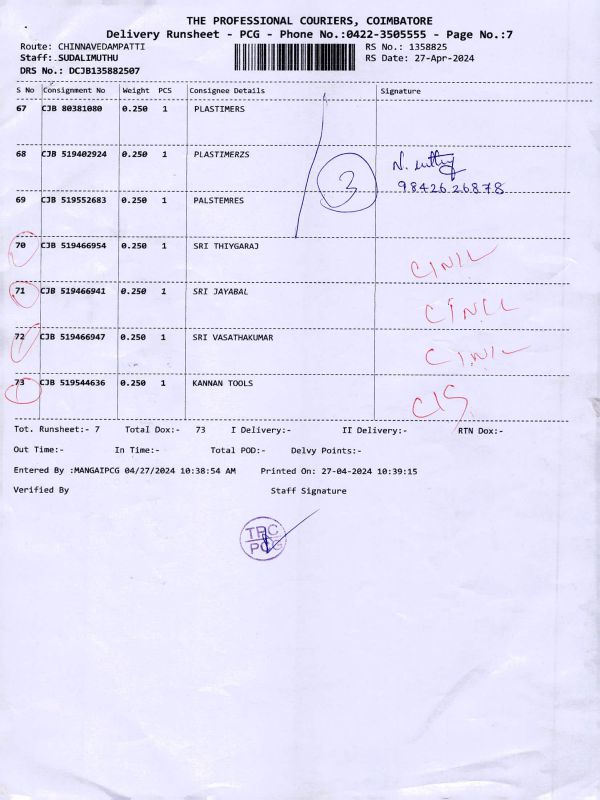 THE PROFESSIONAL COURIERS, COIMBATORE
Delivery Runsheet - PCG - Phone No.:0422-3505555 - Page No.:7
Route: CHINNAVEDAMPATTI RS No.: 1358825
Staff:.SUDALIMUTHU RS Date: 27-Apr-2024
DRS No.: DCJB135882507
S No Consignment No Weight PCS Consignee Details Signature
67 CJB 80381080 0.250 1 PLASTIMERS
68 CJB 519402924 0.250 1 PLASTIMERZS
3 9842626878
69 CJB 519552683 0.250 1 PALSTEMRES
70 CJB 519466954 0.250 1 SRI THIYGARAJ
CINIL
71 CJB 519466941 0.250 1 SRI JAYABAL
CINIL
72 CJB 519466947 0.250 1 SRI VASATHAKUMAR
CINIL
73 CJB 519544636 0.250 1 KANNAN TOOLS
CIS
Tot. Runsheet:- 7 Total Dox:- 73 I Delivery:- II Delivery:- RTN Dox:-
Out Time:- In Time:- Total POD:- Delvy Points:-
Entered By :MANGAIPCG 04/27/2024 10:38:54 AM Printed On: 27-04-2024 10:39:15
Verified By Staff Signature
TPC
PCG